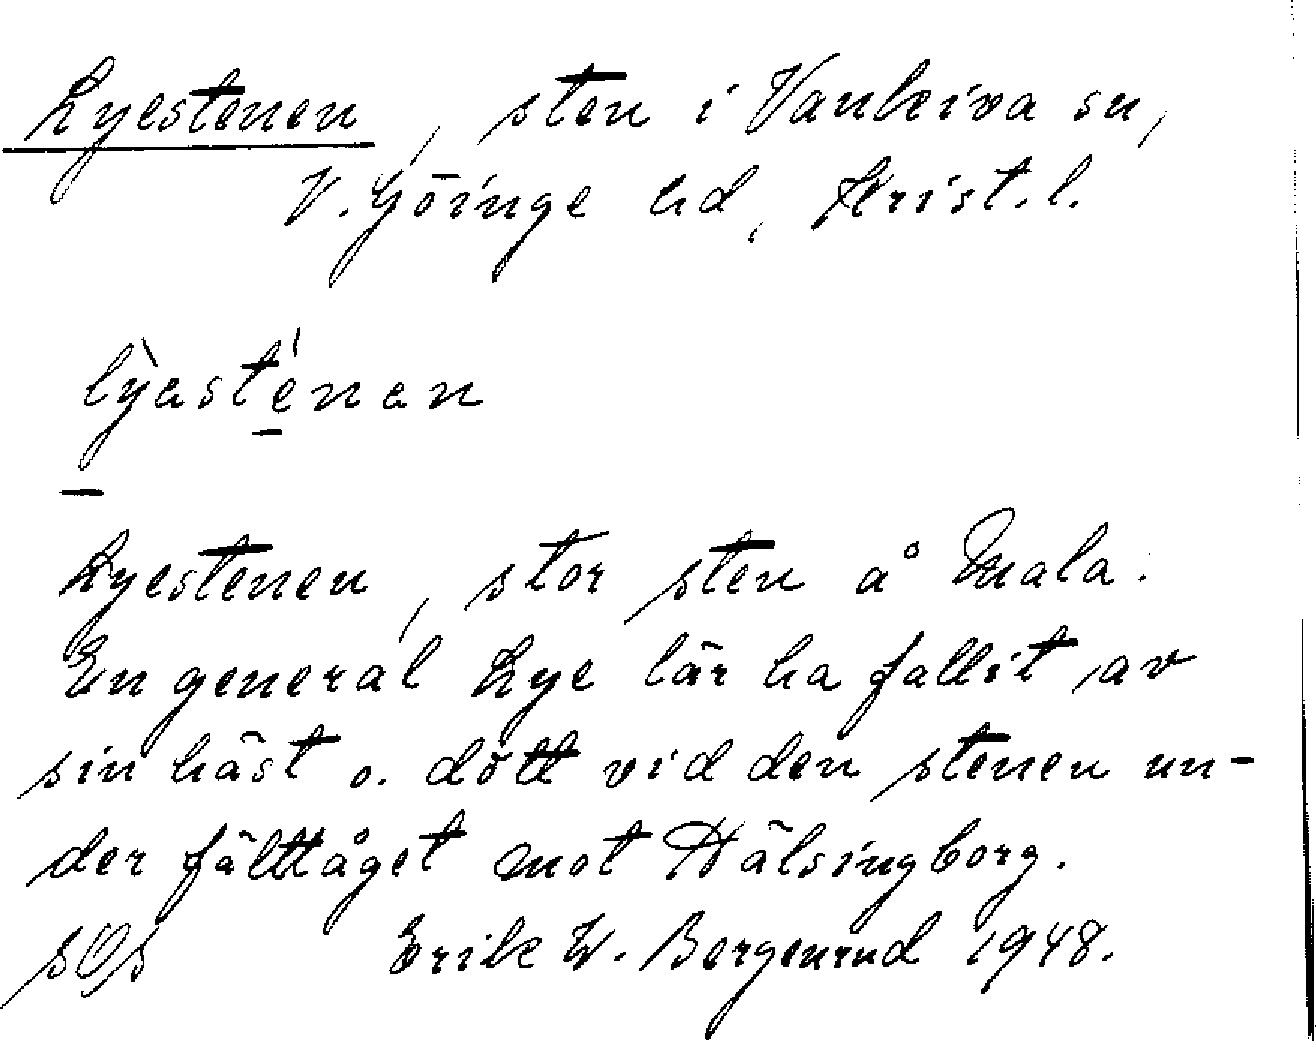 Lyestenen, sten i Vankiva sn,
V. Göinge hd, Krist. l.
lỳasténan
Lyestenen, stor sten å Mala.
En general Lye lär ha fallit av
sin häst o. dött vid den stenen un-
der fälttåget mot Hälsingborg.
SOS Erik W. Bergenrud 1948.